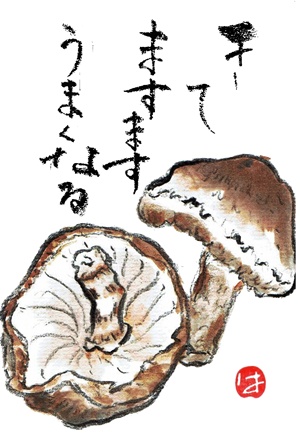 干して
ますます
うまくなる
は